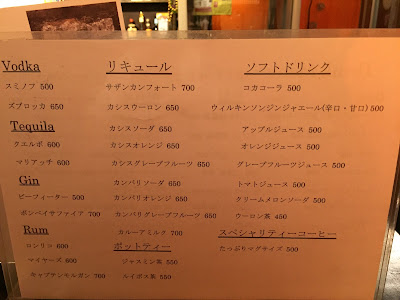 Vodka
スミノフ 500
ズブロッカ 650
Tequila
クエルボ 600
マリアッチ 600
Gin
ビーフィーター 500
ボンベイサファイア 700
Rum
ロンリコ 600
マイヤーズ 600
キャプテンモルガン 700
リキュール
サザンカンフォート 700
カシスウーロン 650
カシスソーダ 650
カシスオレンジ 650
カシスグレープフルーツ 650
カンパリソーダ 650
カンパリオレンジ 650
カンパリグレープフルーツ 650
カルーアミルク 700
ポットティー
ジャスミン茶 550
ルイボス茶 550
ソフトドリンク
コカコーラ 500
ウィルキンソンジンジャエール(辛口・甘口) 500
アップルジュース 500
オレンジジュース 500
グレープフルーツジュース 500
トマトジュース 500
クリームメロンソーダ 500
ウーロン茶 450
スペシャリティーコーヒー
たっぷりマグサイズ 500